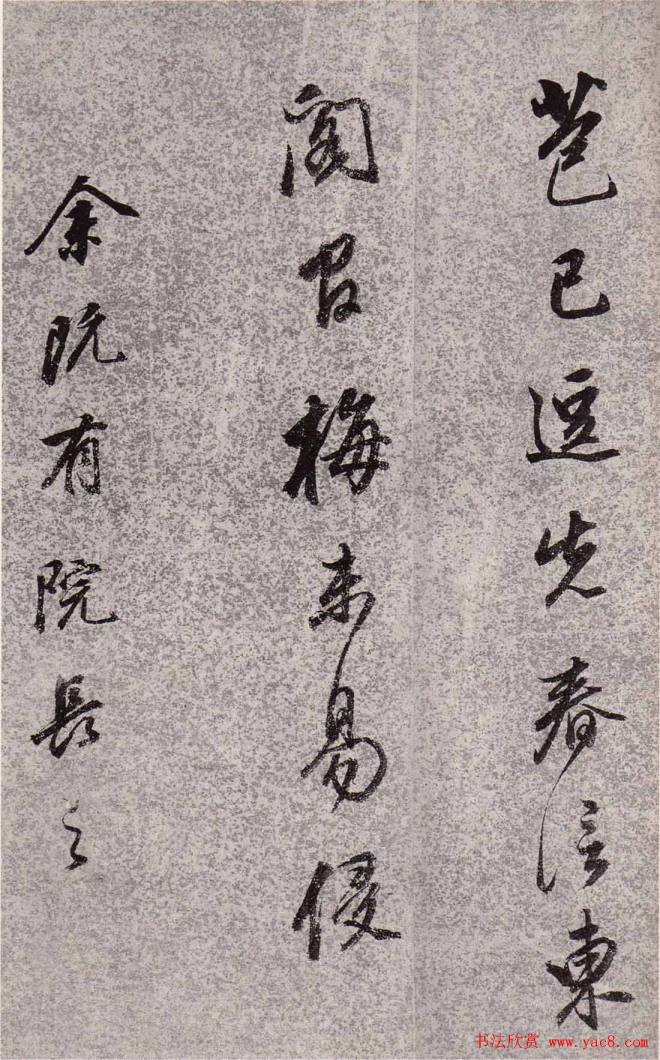 苞已逗先春信東
閣官梅未易侵
余既有院長之
书法欣赏 www.yac8.com